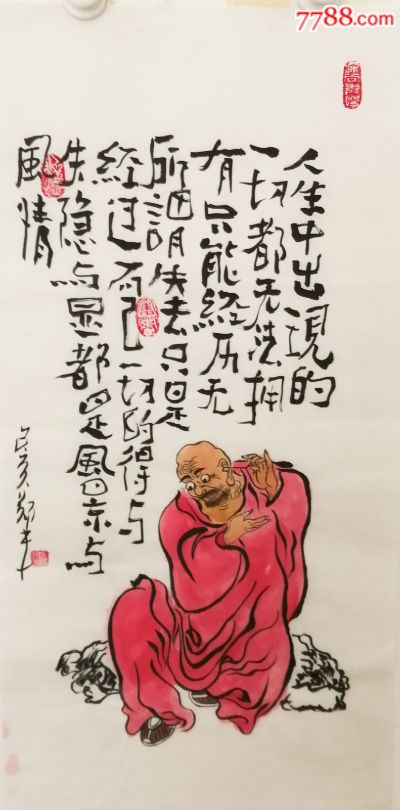 7788.com
人生中出現的
一切都无法拥
有只能经历无
所謂失去只是
经过而已一切的得与
失隐与显都是風景与
風情